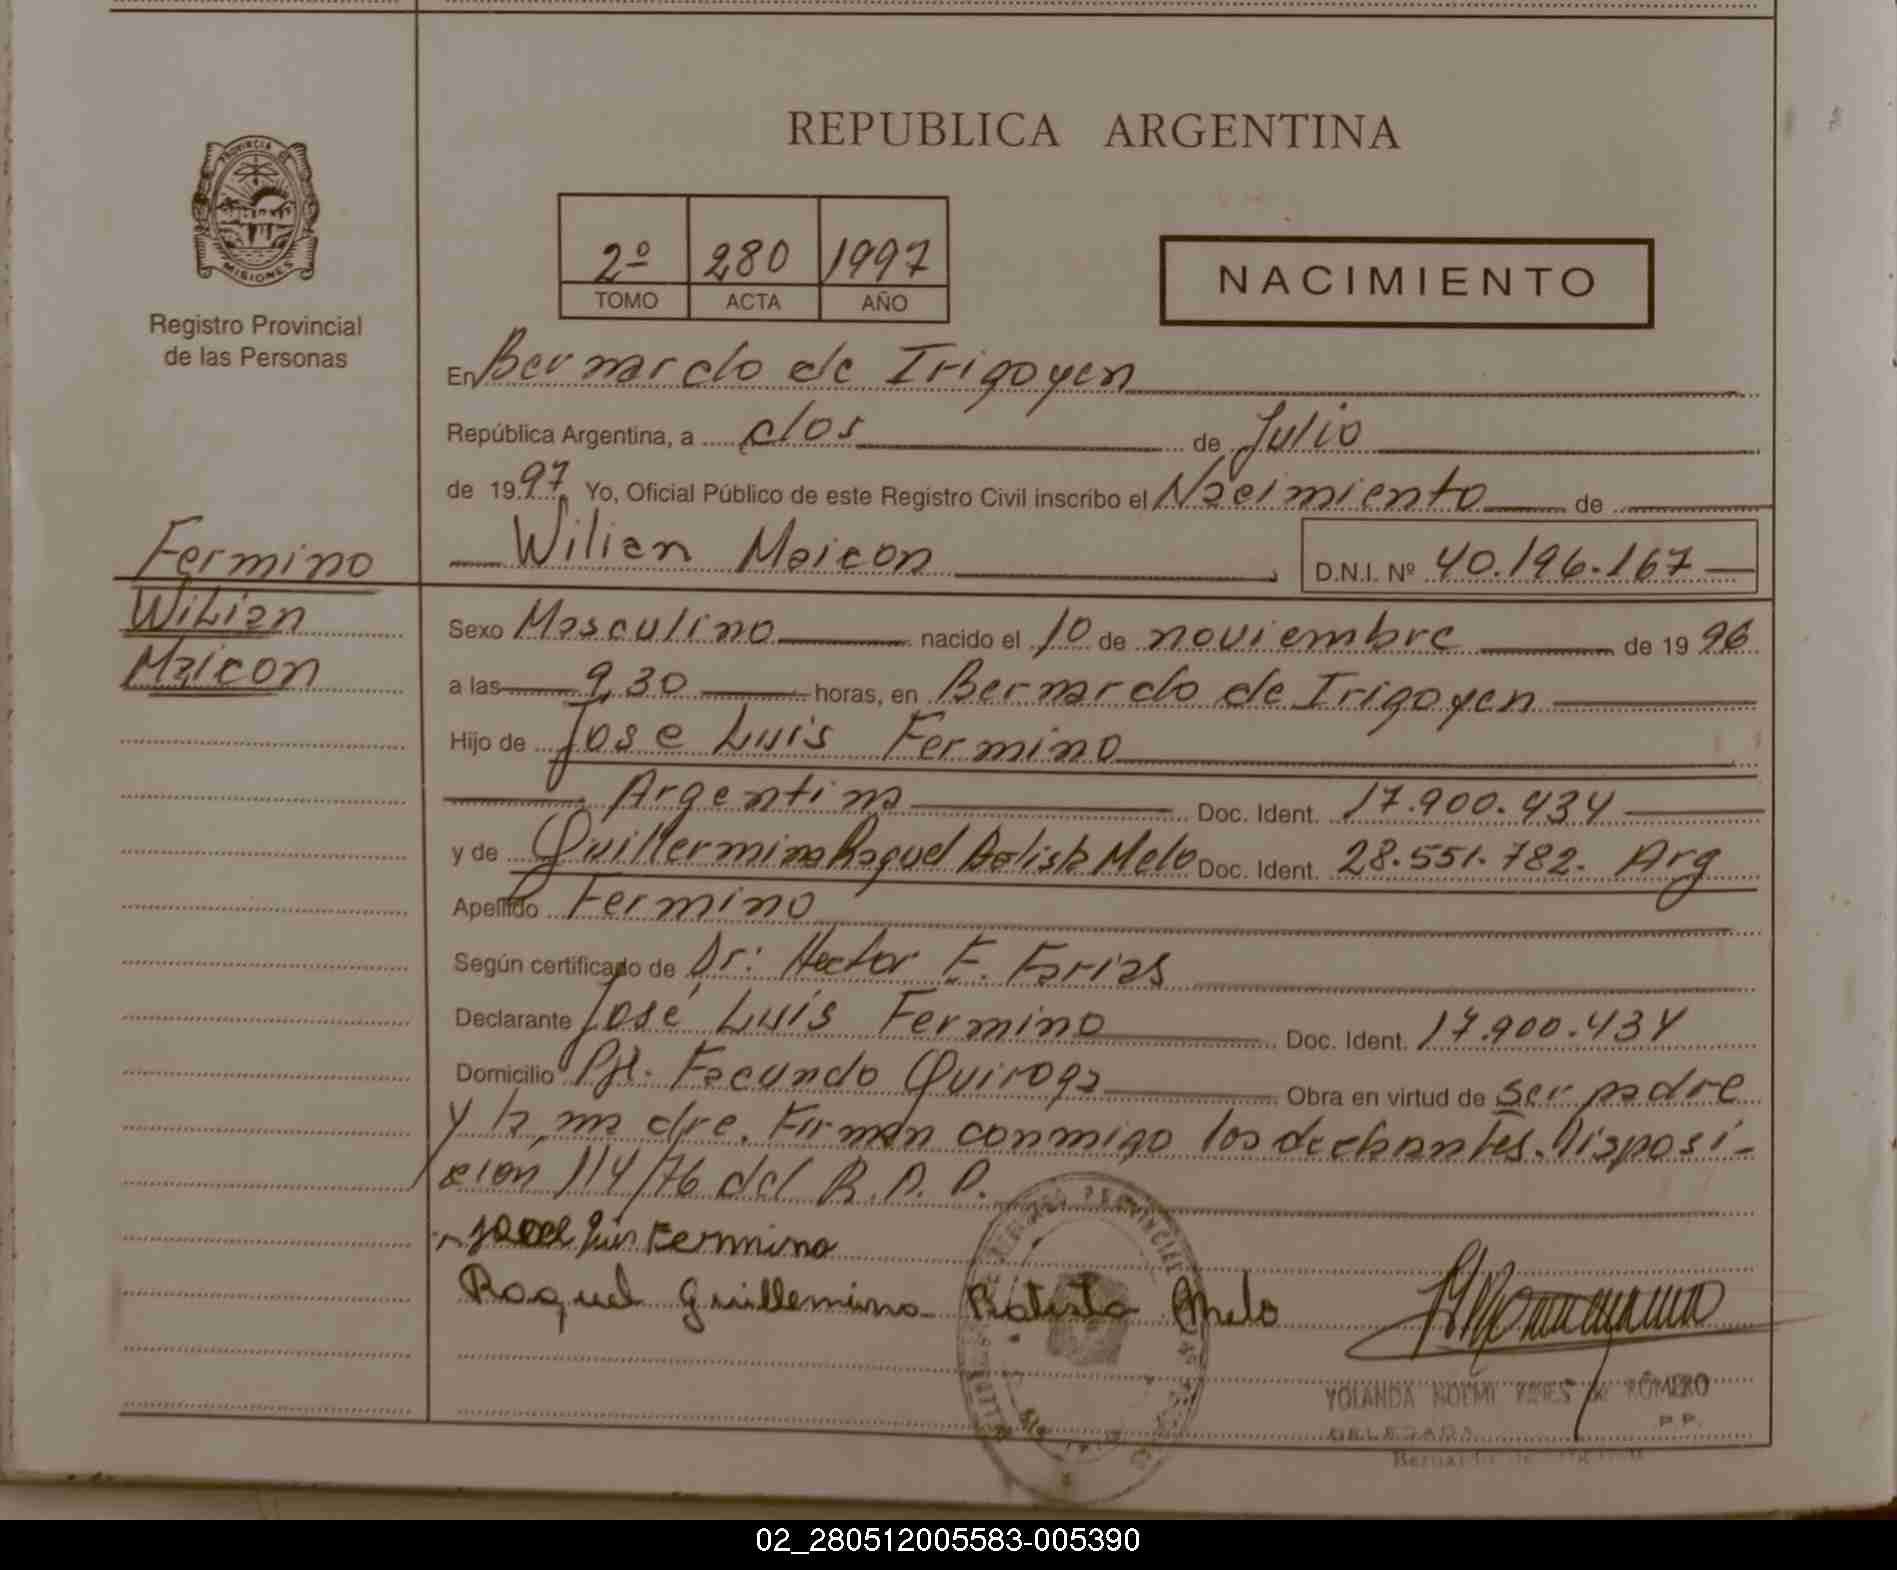 REPUBLICA ARGENTINA
PROVINCIA DE
MISIONES
Registro Provincial
de las Personas
2º 280 1997
TOMO ACTA AÑO
NACIMIENTO
En Bernardo de Irigoyen
República Argentina, a dos de Julio
de 1997. Yo, Oficial Público de este Registro Civil inscribo el Nacimiento de
Wilian Maicon D.N.I. Nº 40.196.167
Fermino
Wilian
Maicon
Sexo Masculino nacido el 10 de noviembre de 1996
a las 9,30 horas, en Bernardo de Irigoyen
Hijo de Jose Luis Fermino
Argentina Doc. Ident. 17.900.434
y de Guillermina Raquel Batista Melo Doc. Ident. 28.551.782. Arg
Apellido Fermino
Según certificado de Dr: Hector F. Farias
Declarante José Luís Fermino Doc. Ident. 17.900.434
Domicilio Pje. Facundo Quiroga Obra en virtud de ser padre
y la madre. Firman conmigo los declarantes. Disposi-
ción 114/76 del R.P.P.
Luis Fermino
Raquel Guillermina Batista Melo
YOLANDA NOEMI DE ROMERO
DELEGADA P.P.
Bernardo de Irigoyen
02_280512005583-005390